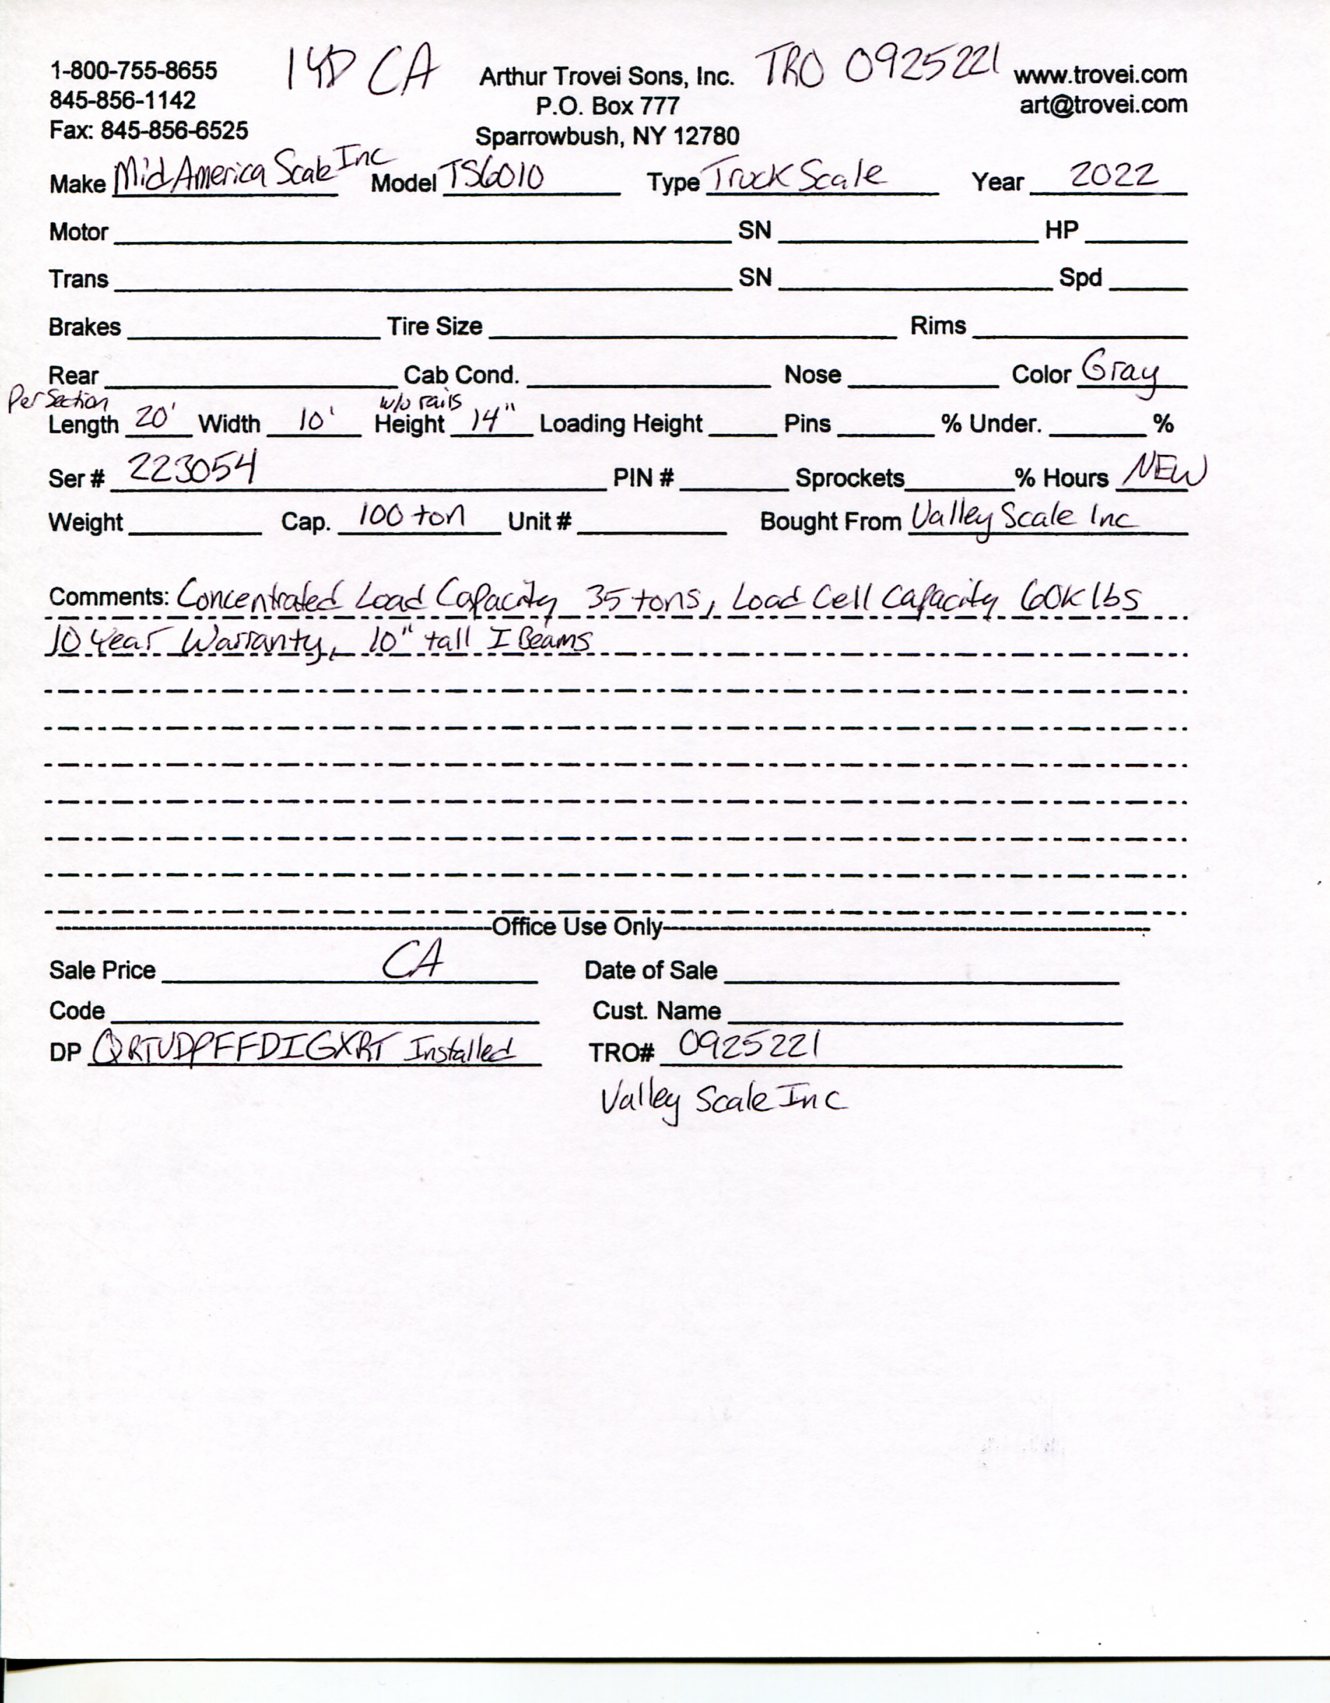 1-800-755-8655 14D CA Arthur Trovei Sons, Inc. TRO 0925221 www.trovei.com
845-856-1142 P.O. Box 777 art@trovei.com
Fax: 845-856-6525 Sparrowbush, NY 12780
Make Mid America Scale Inc Model TS6010 Type Truck Scale Year 2022
Motor SN HP
Trans SN Spd
Brakes Tire Size Rims
Rear Cab Cond. Nose Color Gray
Per Section w/o rails
Length 20' Width 10' Height 14" Loading Height Pins % Under. %
Ser # 223054 PIN # Sprockets % Hours NEW
Weight Cap. 100 ton Unit # Bought From Valley Scale Inc
Comments: Concentrated Load Capacity 35 tons, Load Cell Capacity 60K lbs
10 Year Warranty, 10" tall I Beams
Office Use Only
Sale Price CA Date of Sale
Code Cust. Name
DP QRTUDPFFDIGXRT Installed TRO# 0925221
Valley Scale Inc